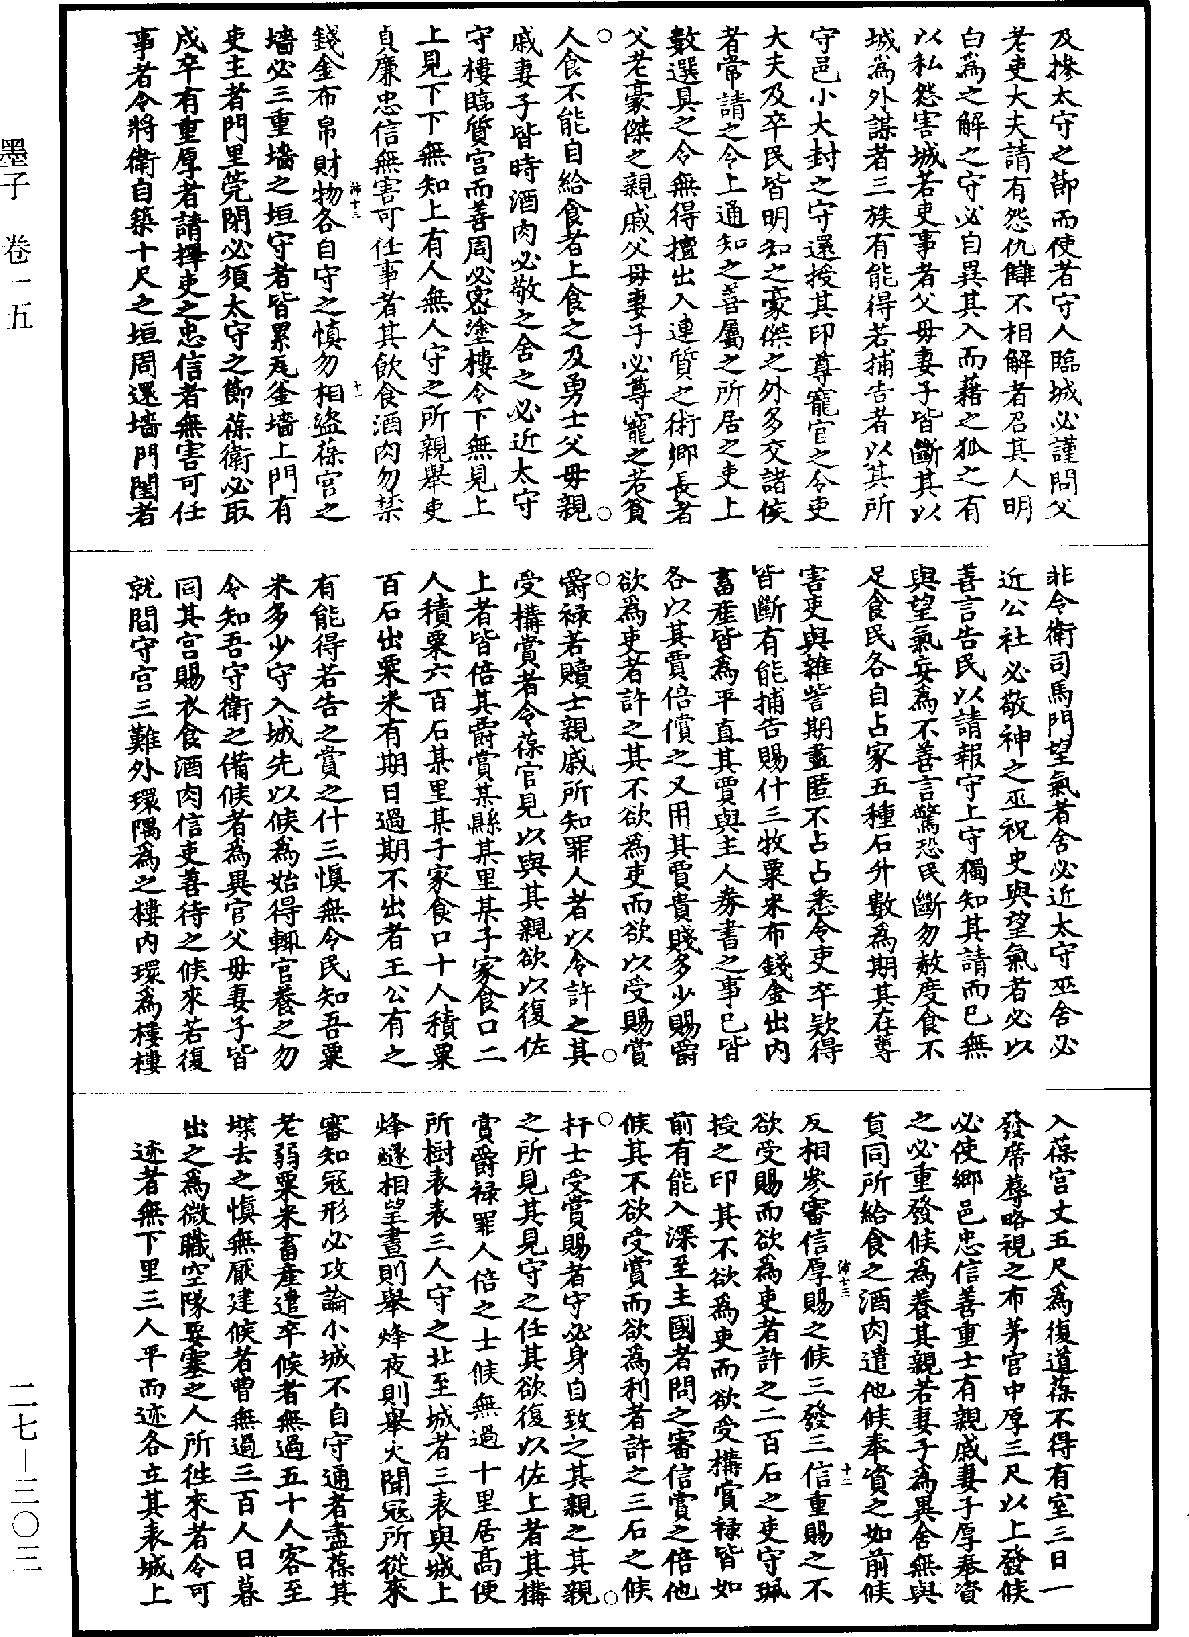 墨子　卷一五
二七—三〇三
及摻太守之節而使者守人臨城必謹問父
老吏大夫請有怨仇讎不相解者召其人明
白為之解之守必自異其人而藉之狐之有
以私怨害城若吏事者父母妻子皆斷其以
城為外謀者三族有能得若捕告者以其所
守邑小大封之守還授其印尊寵官之令吏
大夫及卒民皆明知之豪傑之外多交諸侯
者常請之令上通知之善屬之所居之吏上
數選具之令無得擅出入連質之術鄉長者
父老豪傑之親戚父母妻子必尊寵之若貧
人食不能自給食者上食之及勇士父母親
戚妻子皆時酒肉必敬之舍之必近太守
守樓臨質宮而善周必密塗樓令下無見上
上見下下無知上有人無人守之所親舉吏
貞廉忠信無害可任事者其飲食酒肉勿禁
錢金布帛財物各自守之慎勿相盜葆宮之
墻必三重墻之垣守者皆累瓦釜墻上門有
吏主者門里筦閉必須太守之節葆衛必取
戍卒有重厚者請擇吏之忠信者無害可任
事者令將衛自築十尺之垣周還墻門閨者
非令衛司馬門望氣者舍必近太守巫舍必
近公社必敬神之巫祝史與望氣者必以
善言告民以請報守上守獨知其請而已無
與望氣妄為不善言驚恐民斷勿赦度食不
足食民各自占家五種石升數為期其在蓴
害吏與雜訾期盡匿不占占悉令吏卒款得
皆斷有能捕告賜什三牧粟米布錢金出內
畜產皆為平直其賈與主人券書之事已皆
各以其賈倍償之又用其賈貴賤多少賜爵
欲為吏者許之其不欲為吏而欲以受賜賞
爵祿若贖士親戚所知罪人者以令許之其
受構賞者令葆宮見以與其親欲以復佐
上者皆倍其爵賞某縣某里某子家食口二
人積粟六百石某里某子家食口十人積粟
百石出粟米有期日過期不出者王公有之
有能得若告之賞之什三慎無令民知吾粟
米多少守入城先以候為始得輒官養之勿
令知吾守衛之備候者為異官父母妻子皆
同其宮賜衣食酒肉信吏善待之候來若復
就間守宮三難外環隅為之樓內環為樓樓
入葆宮丈五尺為復道葆不得有室三日一
發席蓐略視之布茅宮中厚三尺以上發候
必使鄉邑忠信善重士有親戚妻子厚奉資
之必重發候為養其親若妻子為異舍無與
負同所給食之酒肉遣他候奉資之如前候
反相參審信厚賜之候三發三信重賜之不
欲受賜而欲為吏者許之二百石之吏守珮
授之印其不欲為吏而欲受構賞祿皆如
前有能入深至主國者問之審信賞之倍他
候其不欲受賞而欲為利者許之三石之候
扞士受賞賜者守必身自致之其親之其親
之所見其見守之任其欲復以佐上者其構
賞爵祿罪人倍之士候無過十里居高便
所樹表表三人守之北至城者三表與城上
烽燧相望晝則舉烽夜則舉火聞寇所從來
審知寇形必攻論小城不自守通者盡葆其
老弱粟米畜產遣卒候者無過五十人客至
堞去之慎無厭建候者曹無過三百人日暮
出之為微職空隊要塞之人所往來者令可
迹者無下里三人平而迹各立其表城上